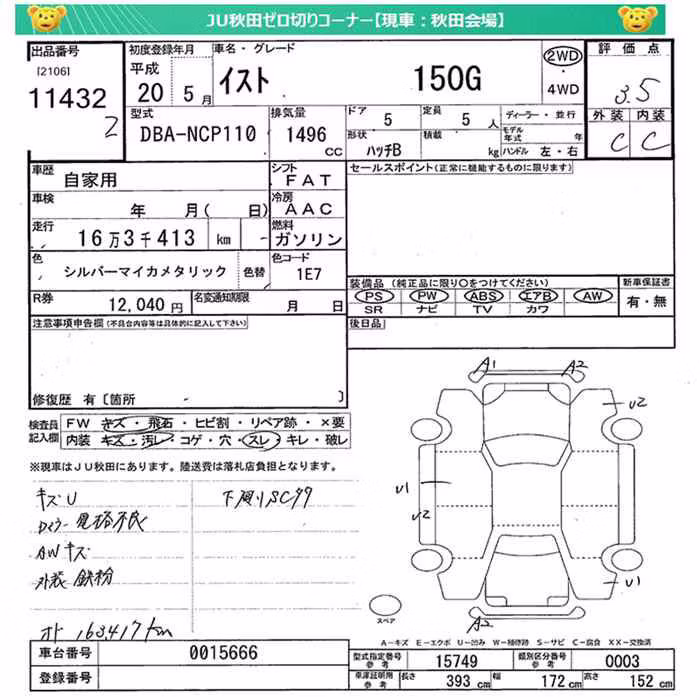 JU秋田ゼロ切りコーナー【現車：秋田会場】
出品番号
[2106]
11432
2
初度登録年月
平成
20 5月
車名・グレード
イスト 150G
2WD
・
4WD
評価点
3.5
外装 内装
C C
型式
DBA-NCP110
排気量
1496
CC
ドア
5
定員
5 人
形状
ハッチB
積載
kg
ディーラー・並行
モデル年式 年
ハンドル 左・右
車歴
自家用
シフト
FAT
セールスポイント(正常に機能するものに限ります)
車検
年 月( 日)
冷房
AAC
走行
16万3千413 km
燃料
ガソリン
色
シルバーマイカメタリック
色替
色コード
1E7
装備品 (純正品に限り○をつけてください)
PS PW ABS エアB AW
SR ナビ TV カワ
新車保証書
有・無
R券
12,040円
名変通知期限
月 日
後日品
注意事項申告欄(不具合内容等は具体的に記入して下さい)
修復歴 有〔箇所 〕
検査員記入欄
FW キズ・飛石・ヒビ割・リペア跡・×要
内装 キズ・汚レ・コゲ・穴・スレ・キレ・破レ
※現車はJU秋田にあります。陸送費は落札店負担となります。
キズU
下廻りSCサ
AWキズ
外装 鉄粉
メーター 163417km
A1 A2
U2
U1
U2
U1
A2
スペア
A-キズ E-エクボ U-凹み W-補修跡 S-サビ C-腐食 XX-交換済
車台番号
0015666
登録番号
型式指定番号
参考
15749
類別区分番号
参考
0003
車庫証明用
参考
長さ
393 cm
幅
172 cm
高さ
152 cm